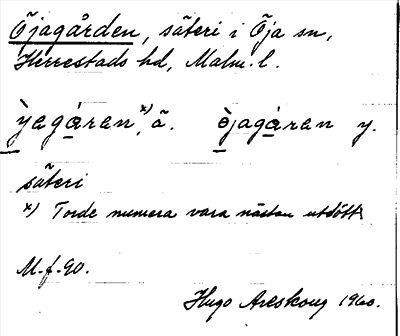 Öjagården, säteri i Öja sn,
Herrestads hd, Malm. l.
ẏ̠agạ̊ran,ˣ⁾ ä. ö̠jagạran y.
säteri
x) Torde numera vara nästan utdött
M.f. 90.
Hugo Areskoug 1960.